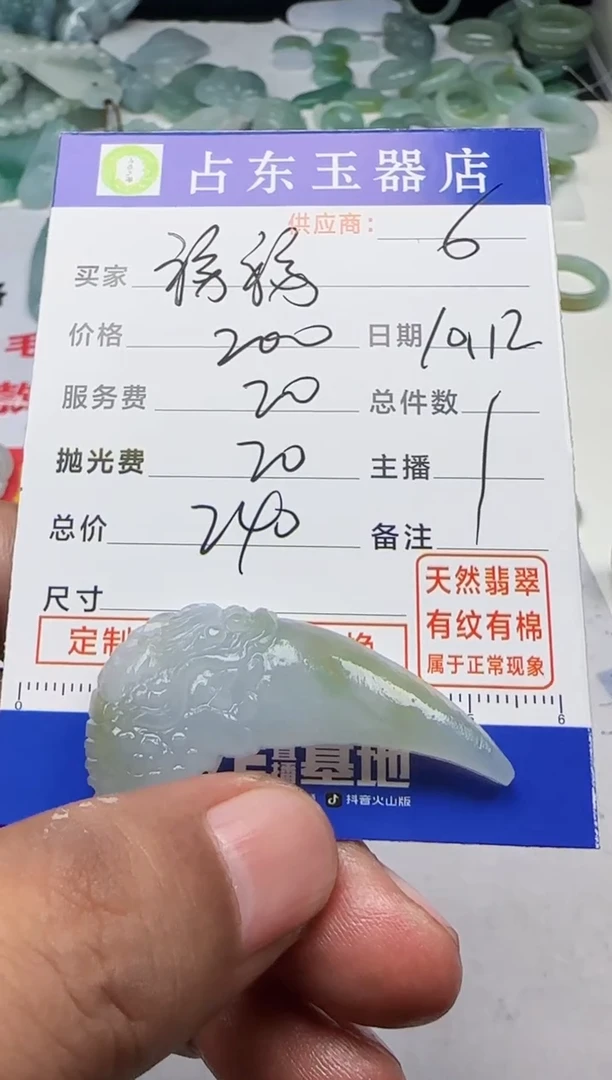 占东玉器店
供应商： 6
买家
价格 200 日期 10.12
服务费 20 总件数 1
抛光费 20 主播
总价 240 备注
尺寸
天然翡翠
有纹有棉
属于正常现象
定制 换
0 5 6
直播基地
抖音火山版